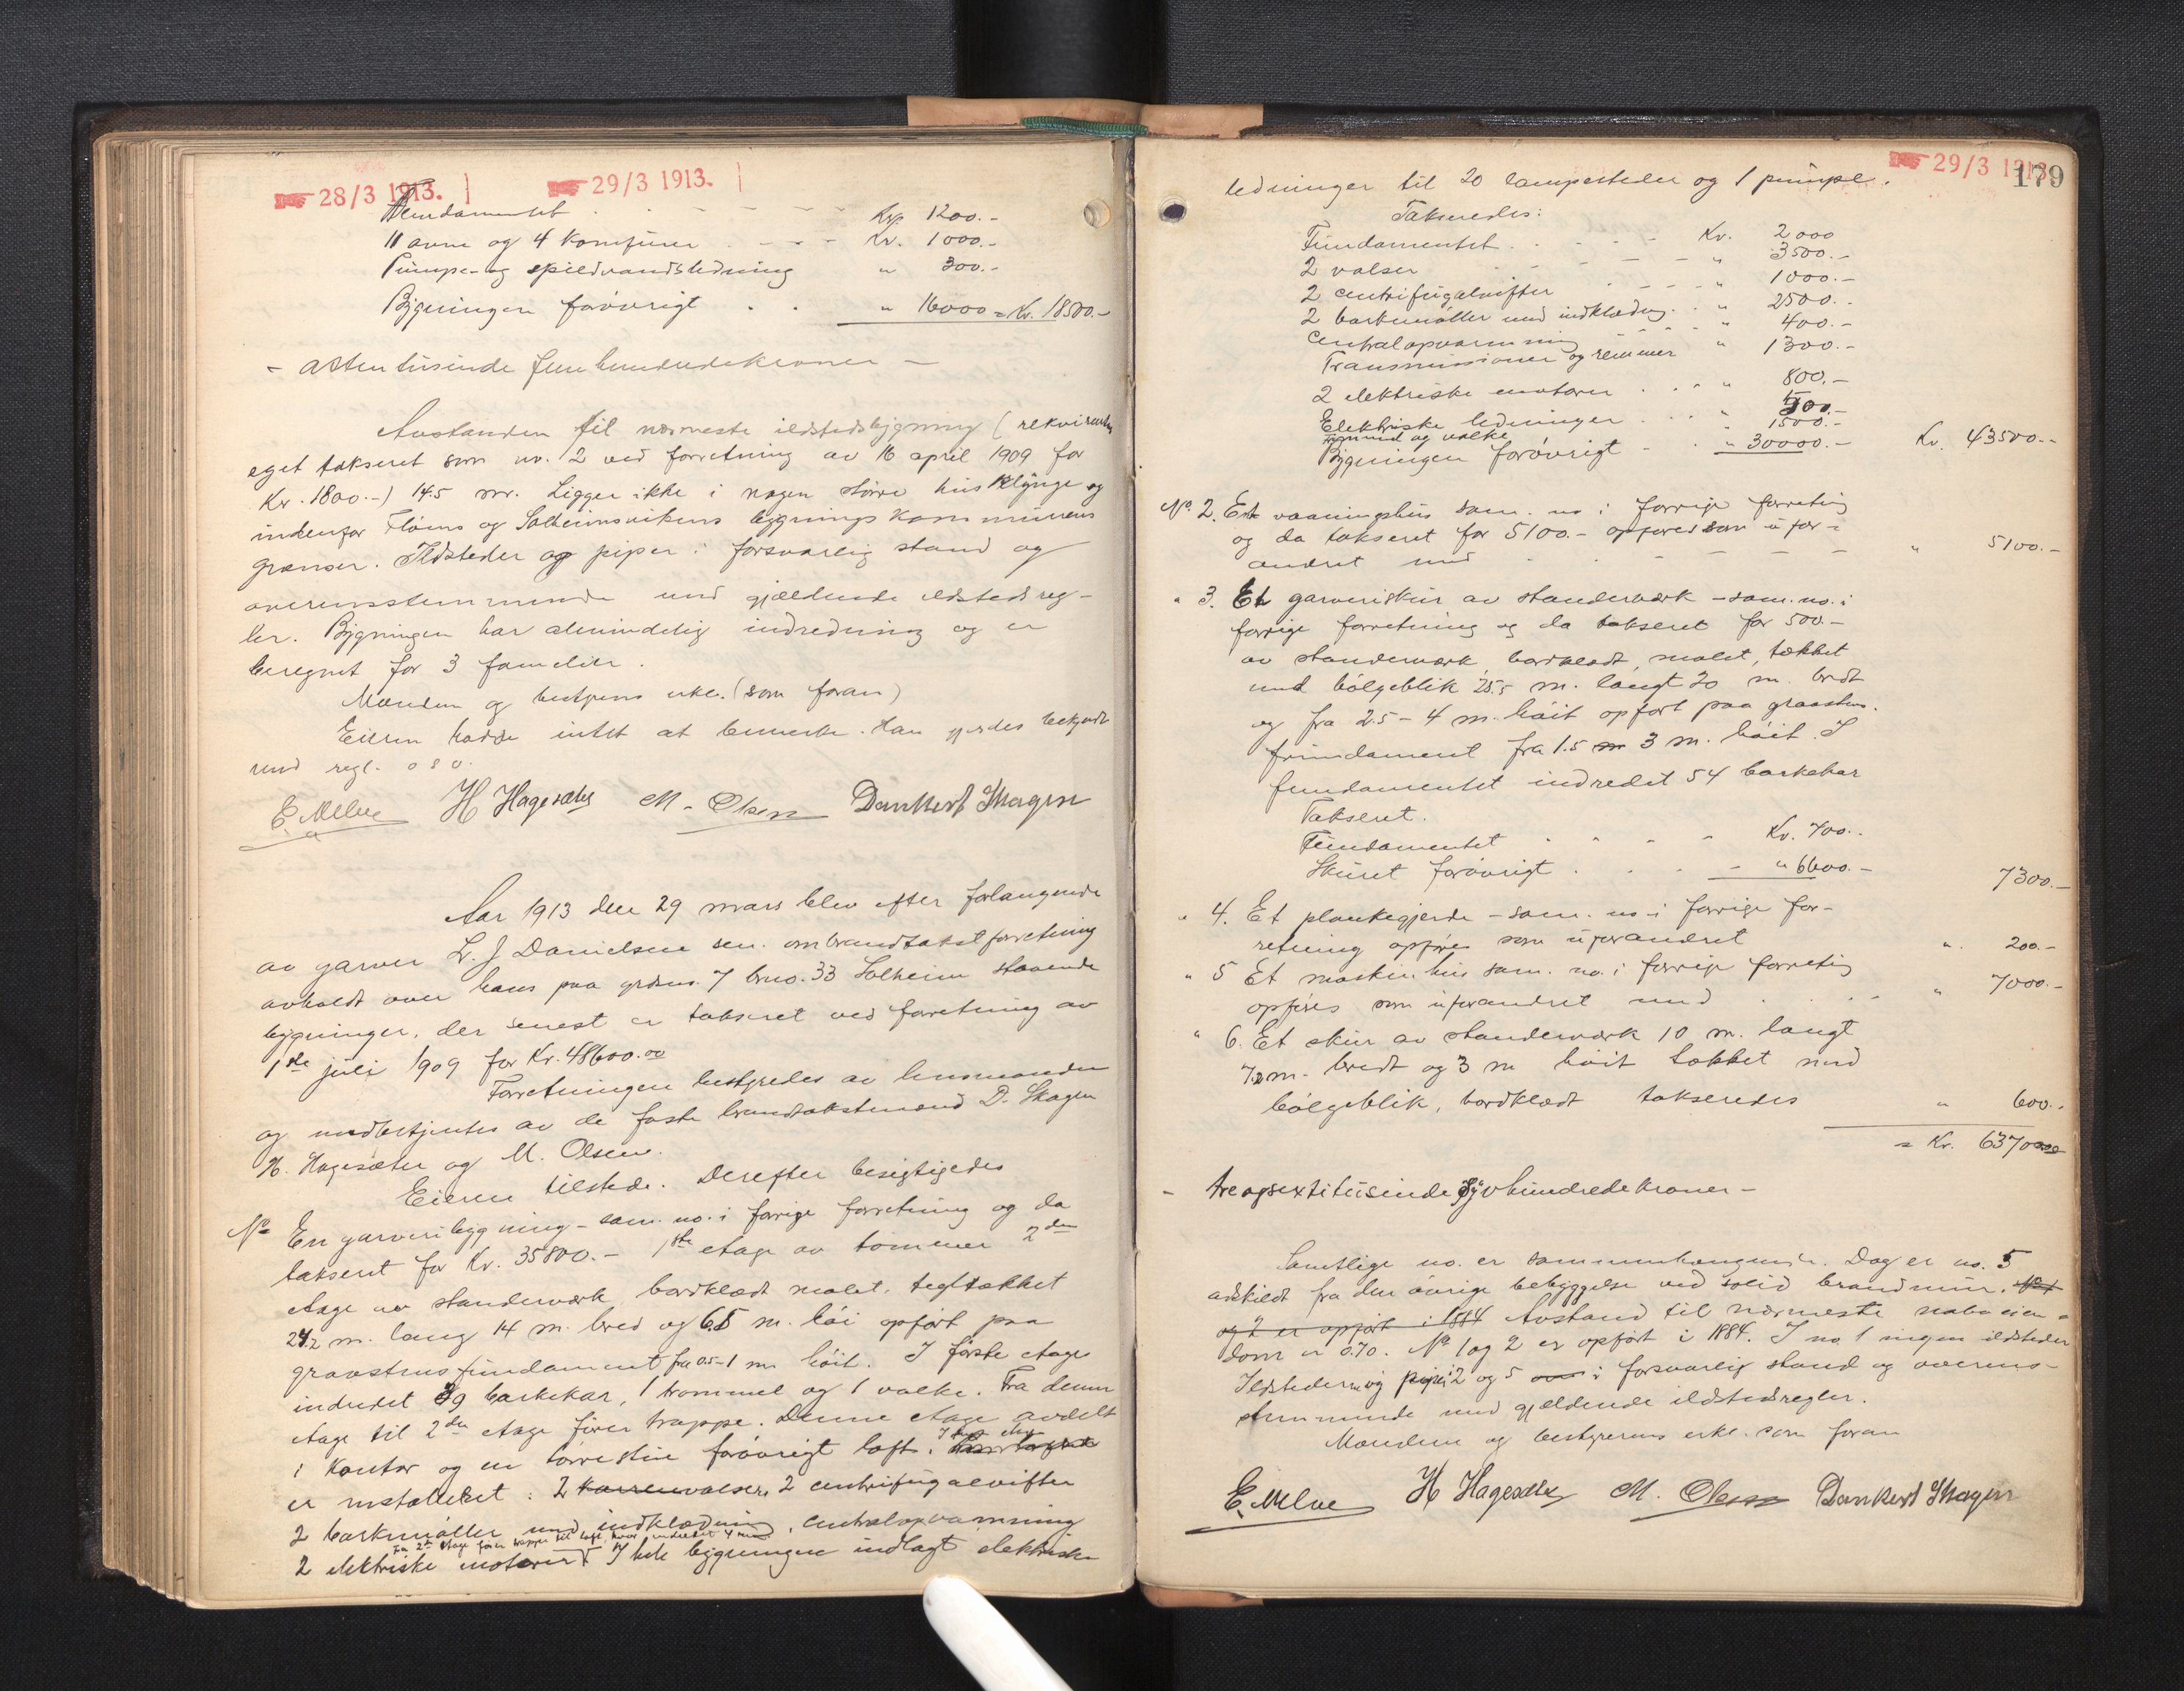 28/3 1913. 29/3 1913.
Fundamentet . . - - - - Kr. 1200.-
11 ovne og 4 komfurer . - - - Kr. 1000.-
Pumpe- og spildvandsledning " 300.-
Bygningen forøvrigt . . " 16000 = Kr. 18500.-
- atten tusinde fem hundredekroner -
Avstanden til nærmeste ildstedsbygning (rekvirentens
eget takseret som no. 2 ved forretning av 16 april 1909 for
Kr. 1800.-) 14.5 m. Ligger ikke i nogen større husklynge og
indenfor Fløens og Solheimsvikens bygningskommunens
grænser. Ildsteder og piper i forsvarlig stand og
overensstemmende med gjældende ildstedsreg-
ler. Bygningen har almindelig indredning og er
beregnet for 3 familier.
Mændene og bestyrens erkl. (som foran)
Eieren hadde intet at bemerke. Han gjordes bekjendt
med regl. o s v.
E. Melve H Hagesæter M. Olsen Dankert Skagen
Aar 1913 den 29 mars blev efter forlangende
av garver L. J Danielsen sen. ombrandtakstforretning
avholdt over hans paa grdsno. 7 bno. 33 Solheim staaende
bygninger, der senest er takseret ved forretning av
1ste juli 1909 for Kr. 48600.00
Forretningen bestyredes av lensmanden
og medbetjentes av de faste brandtakstmænd D. Skagen
H. Hagesæter og M. Olsen.
Eieren tilstede. Derefter besigtigedes
No En garveribygning - sam. no. i forrige forretning og da
takseret for Kr. 35800.- 1ste etage av tømmer 2den
etage av standerværk bordklædt malet, tegltækket
24.2 m. lang 14 m. bred og 6.5 m. høi opført paa
graastensfundament fra 0.5-1 m høit. I første etage
indredet 39 barkekar, 1 trommel og 1 valke. Fra denne
etage til 2den etage fører trappe. Denne etage avdelt
i kontor og en tørrestue forøvrigt loft.
er installeret: 2 valser, 2 centrifugalvifter
2 barkmøller med indklædning, centralopvarmning
Fra 2den etage fører trappe til loft, hvor indredet 4
2 elektriske motorer I hele bygningen indlagt elektriske
29/3 1913
179
ledninger til 20 lampesteder og 1 pumpe.
Takseredes:
Fundamentet . . . - - Kr. 2000
2 valser - - - - " 3500.-
2 centrifugalvifter - - - " 1000.-
2 barkmøller med indklædning . . " 2500.-
Centralopvarmning " 400.-
Transmissioner og remmer " 1300.-
2 elektriske motorer . . . " 800.-
Elektriske ledninger . . . " 500.-
trommel og valke " 1500.-
Bygningen forøvrigt - . . " 30000.- Kr. 43500.-
No. 2. Et vaaningshus sam. no i forrige forretning
og da takseret for 5100.- opføres som ufor-
andret med . . . - - - - " 5100.-
" 3. Et garveriskur av standerværk - sam. no. i
forrige forretning og da takseret for 500.-
av standerværk, bordklædt, malet, tækket
med bølgeblik 25.5 m. langt 20 m. bredt
og fra 2.5 - 4 m. høit opført paa graastens-
fundament fra 1.5 m 3 m. høit. I
fundamentet indredet 54 barkekar
Takseret.
Fundamentet . . . - Kr. 700.-
Skuret forøvrigt . . . - " 6600.- 7300.-
" 4. Et plankegjerde - sam. no i forrige for-
retning opføres som uforandret " 200.-
" 5 Et maskinhus sam. no. i forrige forretning
opføres som uforandret med . . . - " 7000.-
" 6. Et skur av standerværk 10 m. langt
7.2 m. bredt og 3 m høit tækket med
bølgeblik, bordklædt takseredes " 600.-
= Kr. 63700.00
- treogsextitusinde syvhundredekroner -
Samtlige no. er sammenhængende. Dog er no. 5
adskildt fra den øvrige bebyggelse ved solid brandmur. No 1
og 2 er opført i 1884 Avstand til nærmeste naboeien-
dom er 0.70. No 1 og 2 er opført i 1884. I no 1 ingen ildsteder
Ildstederne og piper i 2 og 5 i forsvarlig stand og overens-
stemmende med gjældende ildstedsregler.
Mændene og bestyrerens erkl. som foran
E. Melve H Hagesæter M. Olsen Dankert Skagen